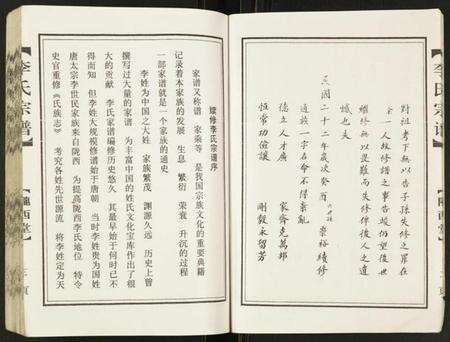 李氏宗譜】
【隴西堂】
頁
對祖考下無以告子孫失修之罪在
余一人故修譜之事告竣仍望後世
繼修無以是難而失修俾後人之遺
憾也夫
民國二十二年歲次癸酉 崇裕續修
通族一字名命不得紊亂
德立人才廣 家齊克萬邦
恒常功儉讓 剛毅永留芳
续修李氏宗谱序
家谱又称谱 家乘等 是我国宗族文化的重要典籍
记录着本家族的发展 生息 繁衍 荣衰 升沉的过程
一部家谱就是一个家族的通史
李姓为中国之大姓 家族繁茂 渊源久远 历史上曾
撰写过大量的家谱 为丰富中国的姓氏文化宝库作出了很
大的贡献 李氏家谱编修历史悠久 其最早始于何时已不
得而知 但李姓大规模修谱始于唐朝 当时李姓贵为国姓
唐太宗李世民家族来自陇西 为提高陇西李氏地位 特令
史官重修《氏族志》 考究各姓先世源流 将李姓定为天
【李氏宗谱】
【隴西堂】
頁